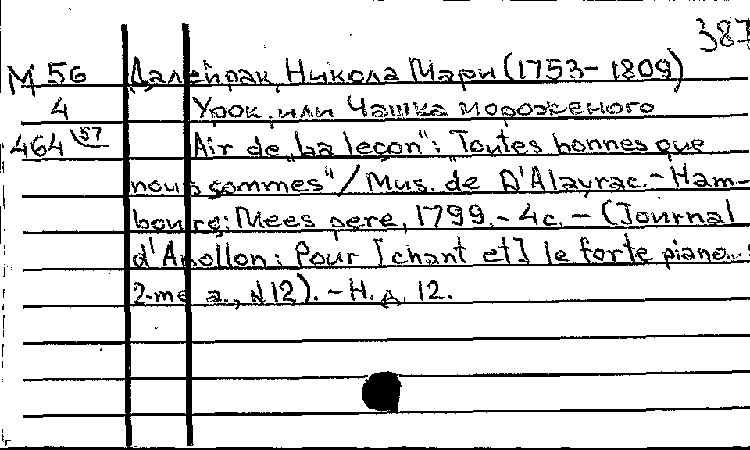 387
М 56 Далейрак, Никола Мари (1753-1809)
4 Урок, или Чашка мороженого
464\57 Air de „La leçon": Toutes bonnes que
nous sommes"/ Mus. de D'Alayrac.-Ham-
bourg: Mees pere, 1799.-4c. - (Journal
d'Apollon: Pour [chant et] le forte piano...
2-me a., N12). - Н. д. 12.